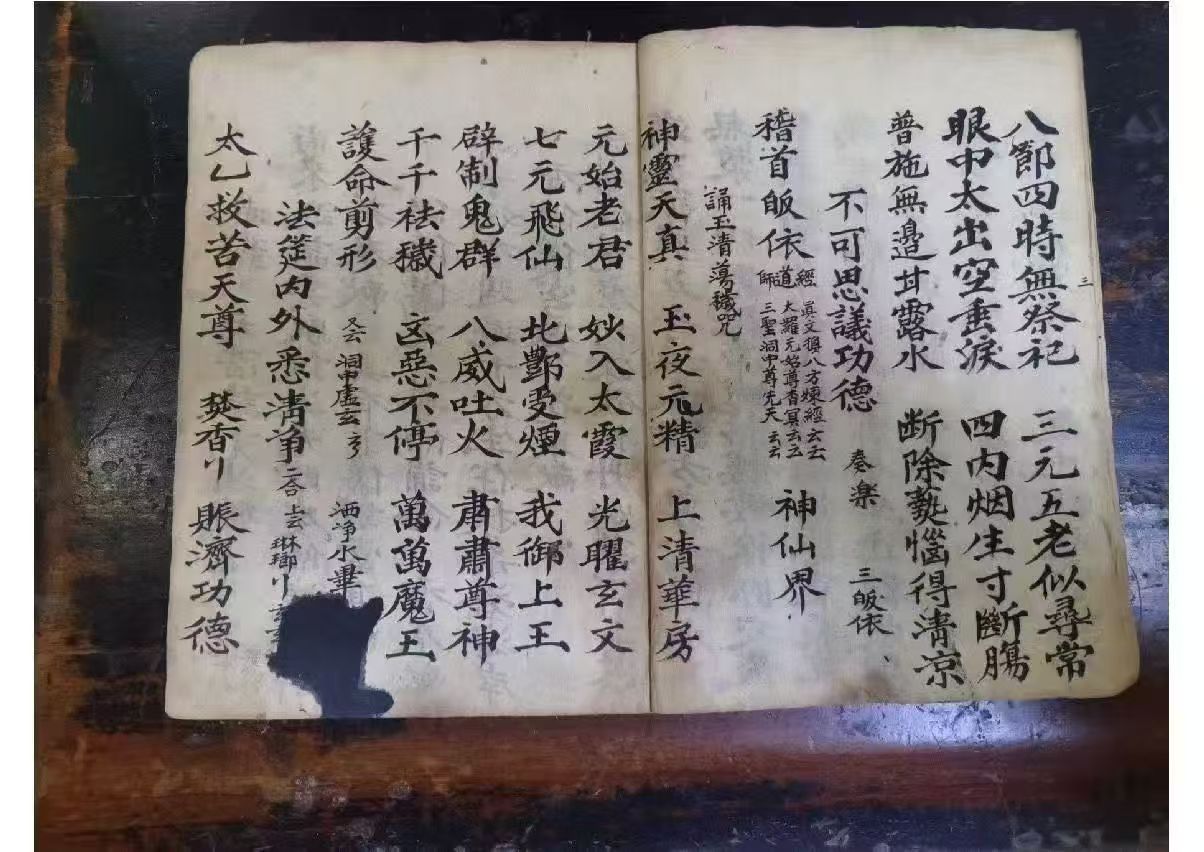 三
八節四時無祭祀　三元五老似尋常
眼中太出空垂淚　四内烟生寸斷腸
普施無邊甘露水　断除熱惱得清凉
不可思議功德　奏樂　三皈依
稽首皈依 道經師 眞文撰八方煉經云云 大羅元始尊香冥云云 三聖洞中尊先天云云 神仙界
誦玉清蕩穢咒
神靈天真　玉夜元精　上清華房
元始老君　妙入太霞　光曜玄文
七元飛仙　北酆受煙　我御上王
辟制鬼群　八威吐火　肅肅尊神
千千祛穢　凶惡不停　萬萬魔王
護命剪形 又云 洞中虛玄 洒淨水畢
法筵内外悉清爭 二合 上云 琳瑯
太乙救苦天尊　焚香　賑濟功德